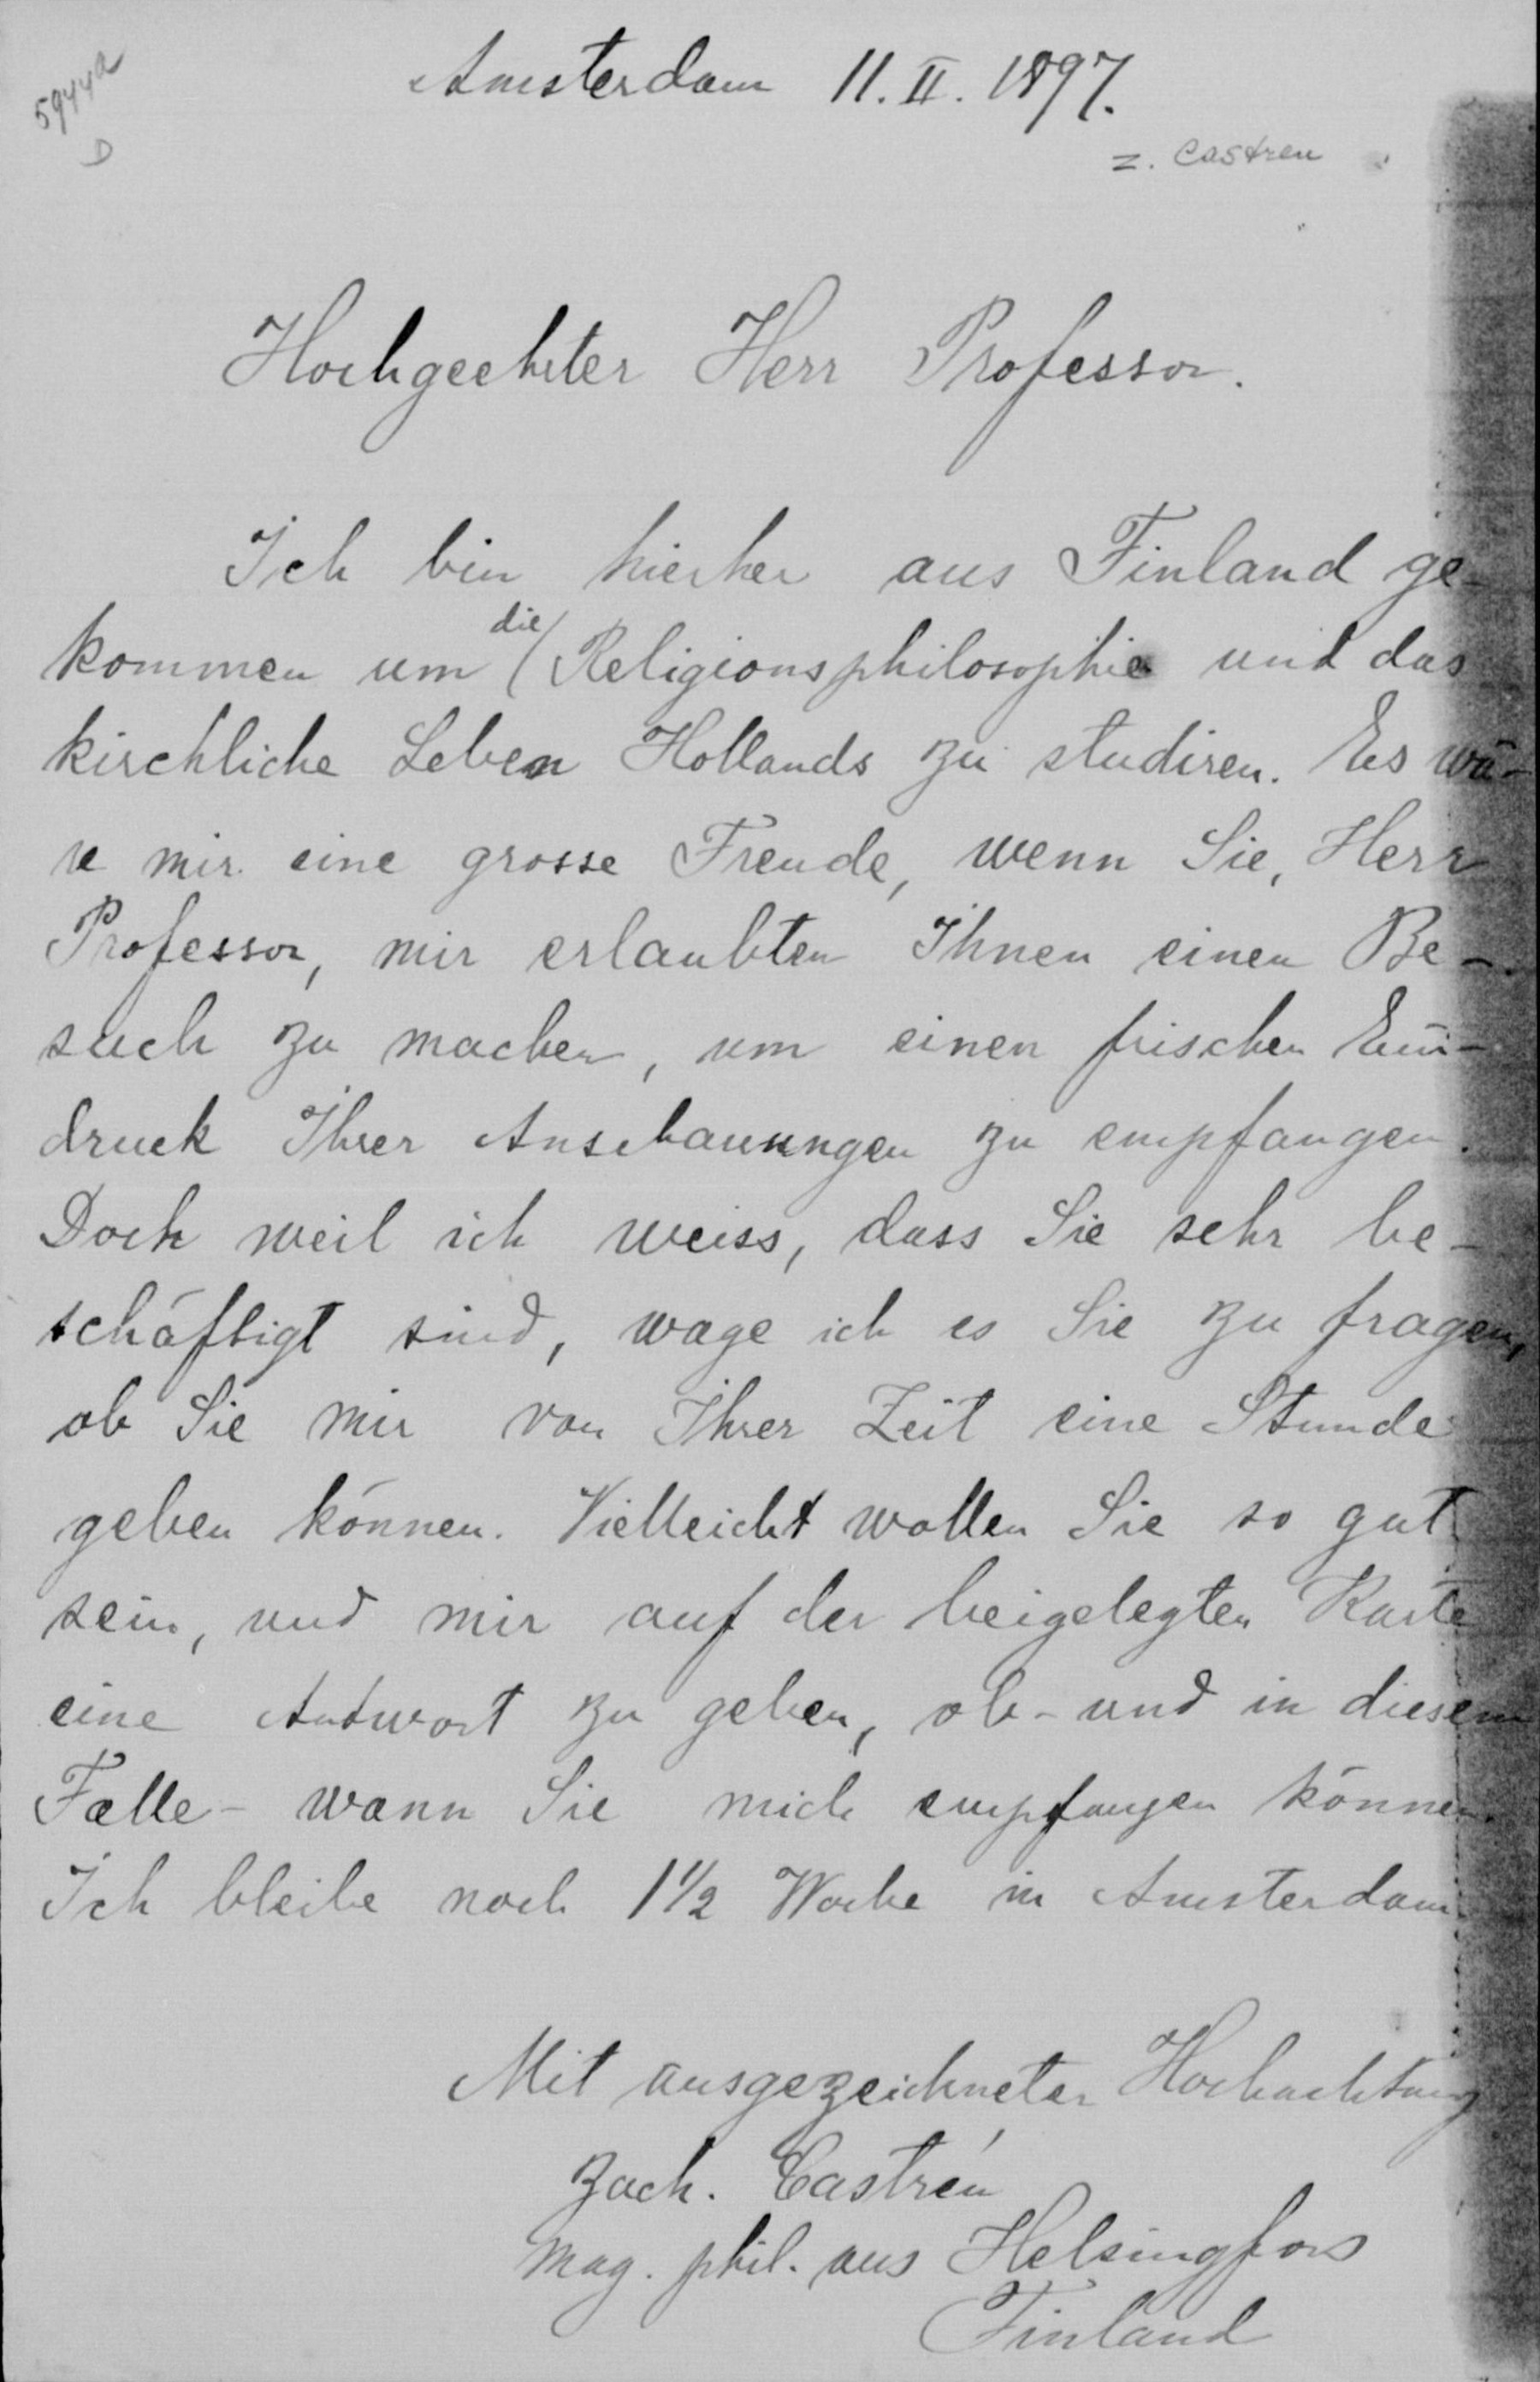 5944a
D
Amsterdam 11. II. 1897.
Z. Castren
Hochgeehrter Herr Professor.
Ich bin hierher aus Finland ge-
kommen um die Religionsphilosophie und das
kirchliche Leben Hollands zu studiren. Es wä-
re mir eine grosse Freude, wenn Sie, Herr
Professor, mir erlaubten Ihnen einen Be-
such zu machen, um einen frischen Ein-
druck Ihrer Anschauungen zu empfangen.
Doch weil ich weiss, dass Sie sehr be-
schäftigt sind, wage ich es Sie zu fragen,
ob Sie mir von Ihrer Zeit eine Stunde
geben können. Vielleicht wollen Sie so gut
sein, und mir auf der beigelegten Karte
eine Antwort zu geben, ob - und in diesem
Falle - wann Sie mich empfangen können.
Ich bleibe noch 1 1/2 Woche in Amsterdam.
Mit ausgezeichneter Hochachtung
Zach. Castrén
Mag. phil. aus Helsingfors
Finland